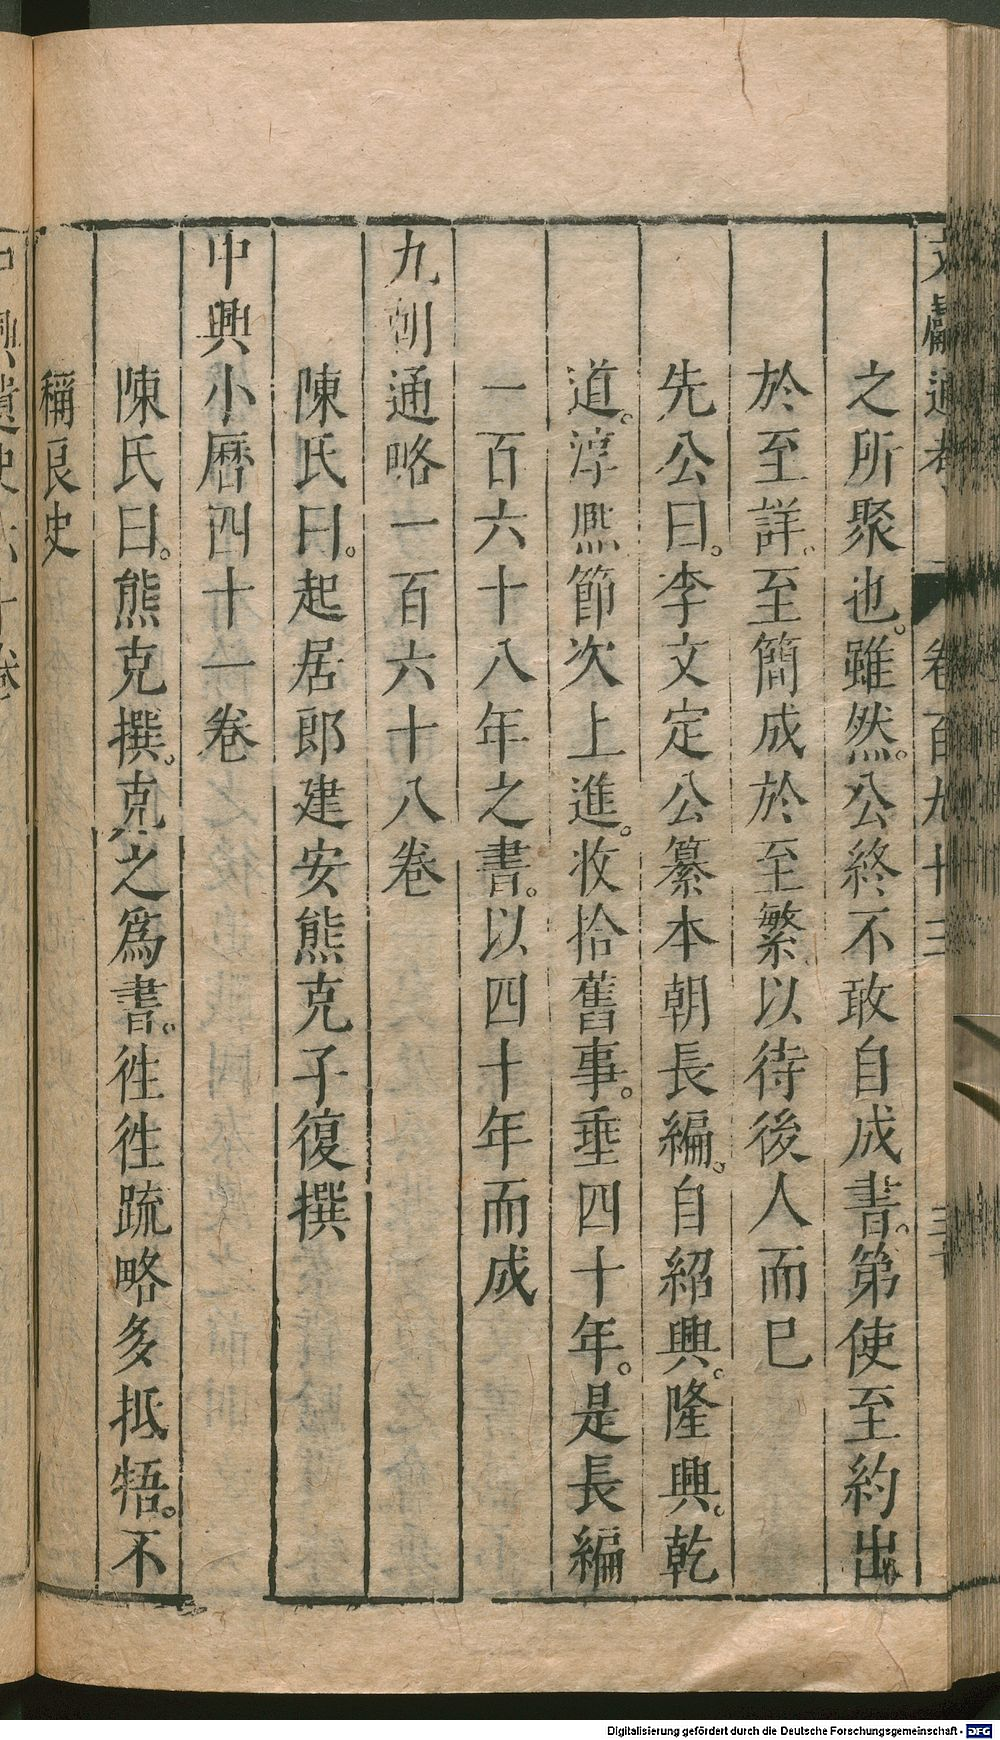 文獻通考 卷百九十三 三
之所聚也。雖然。公終不敢自成書。第使至約出
於至詳。至簡成於至繁以待後人而已
先公曰。李文定公纂本朝長編。自紹興。隆興。乾
道。淳熈節次上進。收拾舊事。垂四十年。是長編
一百六十八年之書。以四十年而成
九朝通略一百六十八卷
陳氏曰。起居郎建安熊克子復撰
中興小曆四十一卷
陳氏曰。熊克撰。克之爲書。徃徃疏略多抵牾。不
稱良史
中興遺史六十卷
Digitalisierung gefördert durch die Deutsche Forschungsgemeinschaft - DFG